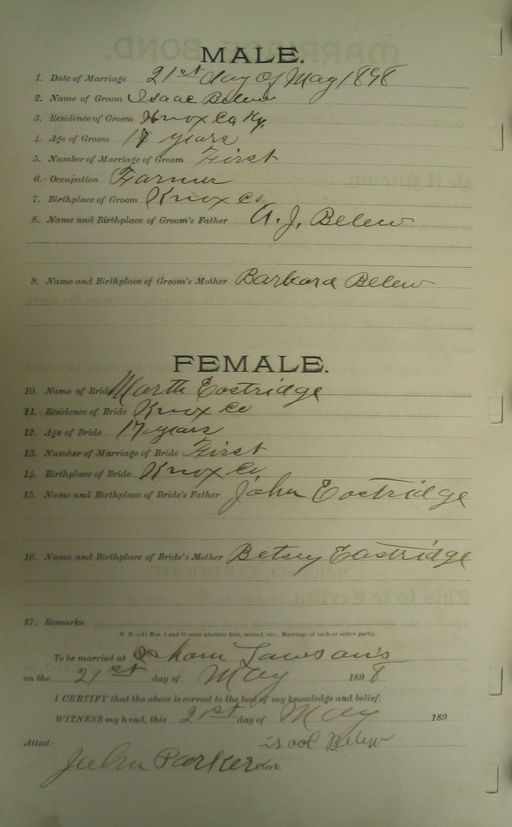 MALE.
1. Date of Marriage 21st day of May 1898
2. Name of Groom Isaac Belew
3. Residence of Groom Knox Co Ky.
4. Age of Groom years
5. Number of Marriage of Groom First
6. Occupation Farmer
7. Birthplace of Groom Knox Co
8. Name and Birthplace of Groom's Father A. J. Belew
9. Name and Birthplace of Groom's Mother Barbara Belew
FEMALE.
10. Name of Bride Marth Eastridge
11. Residence of Bride Knox Co
12. Age of Bride 17 years
13. Number of Marriage of Bride First
14. Birthplace of Bride Knox Co
15. Name and Birthplace of Bride's Father John Eastridge
16. Name and Birthplace of Bride's Mother Betsey Eastridge
17. Remarks
N. B.—At Nos. 5 and 13 state whether first, second, etc., Marriage of each or either party.
To be married at Isham Lawson's
on the 21st day of May 1898
I CERTIFY that the above is correct to the best of my knowledge and belief.
WITNESS my hand, this 21st day of May 189
Belew
Attest:
John Parker Clerk.